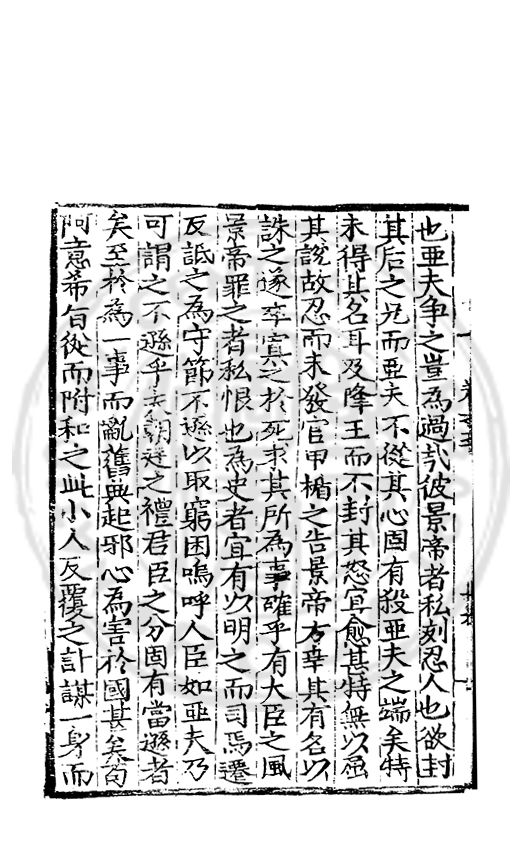 也亞夫争之豈為過㢤彼景帝者私刻忍人也欲封
其后之兄而亞夫不從其心固有殺亞夫之端矣特
未得其名耳及降王而不封其怒宜愈甚特無以屈
其說故忍而未發官甲楯之告景帝方幸其有名以
誅之遂卒寘之於死求其所為事確乎有大臣之風
景帝罪之者私恨也為史者宜有以明之而司馬遷
反詆之為守節不遜以取窮困嗚呼人臣如亞夫乃
可謂之不遜乎夫朝廷之禮君臣之分固有當遜者
矣至於為一事而亂舊典起邪心為害於國甚矣苟
阿意希旨從而附和之此小人反覆之計謀一身而